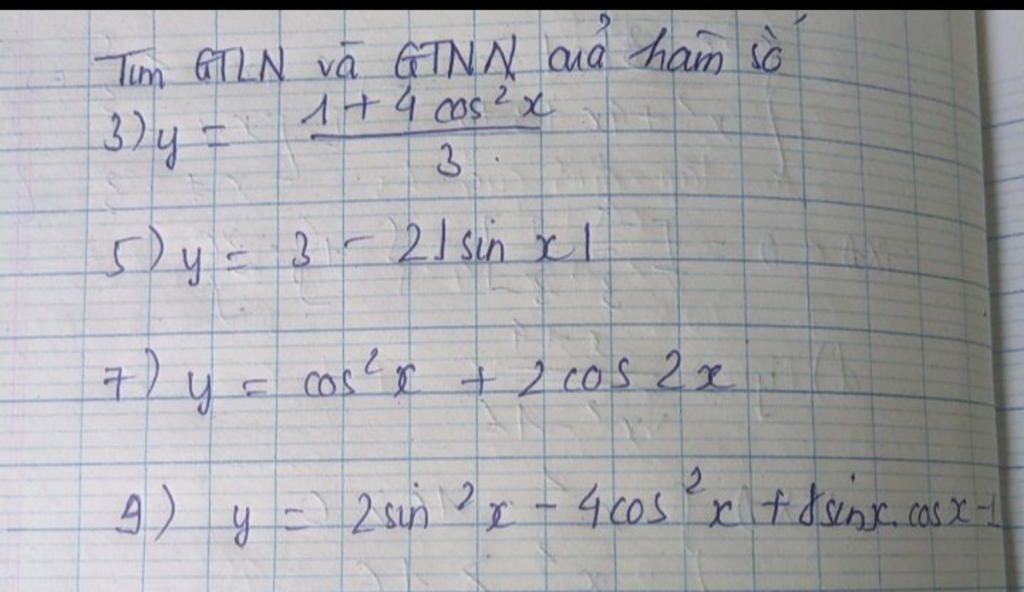 Tìm GTLN và GTNN củả hàm số
3) y = \frac{1 + 4 cos²x}{3}
5) y = 3 - 2|sin x|
7) y = cos²x + 2 cos 2x
9) y = 2sin²x - 4cos²x + 8sinx.cosx-1